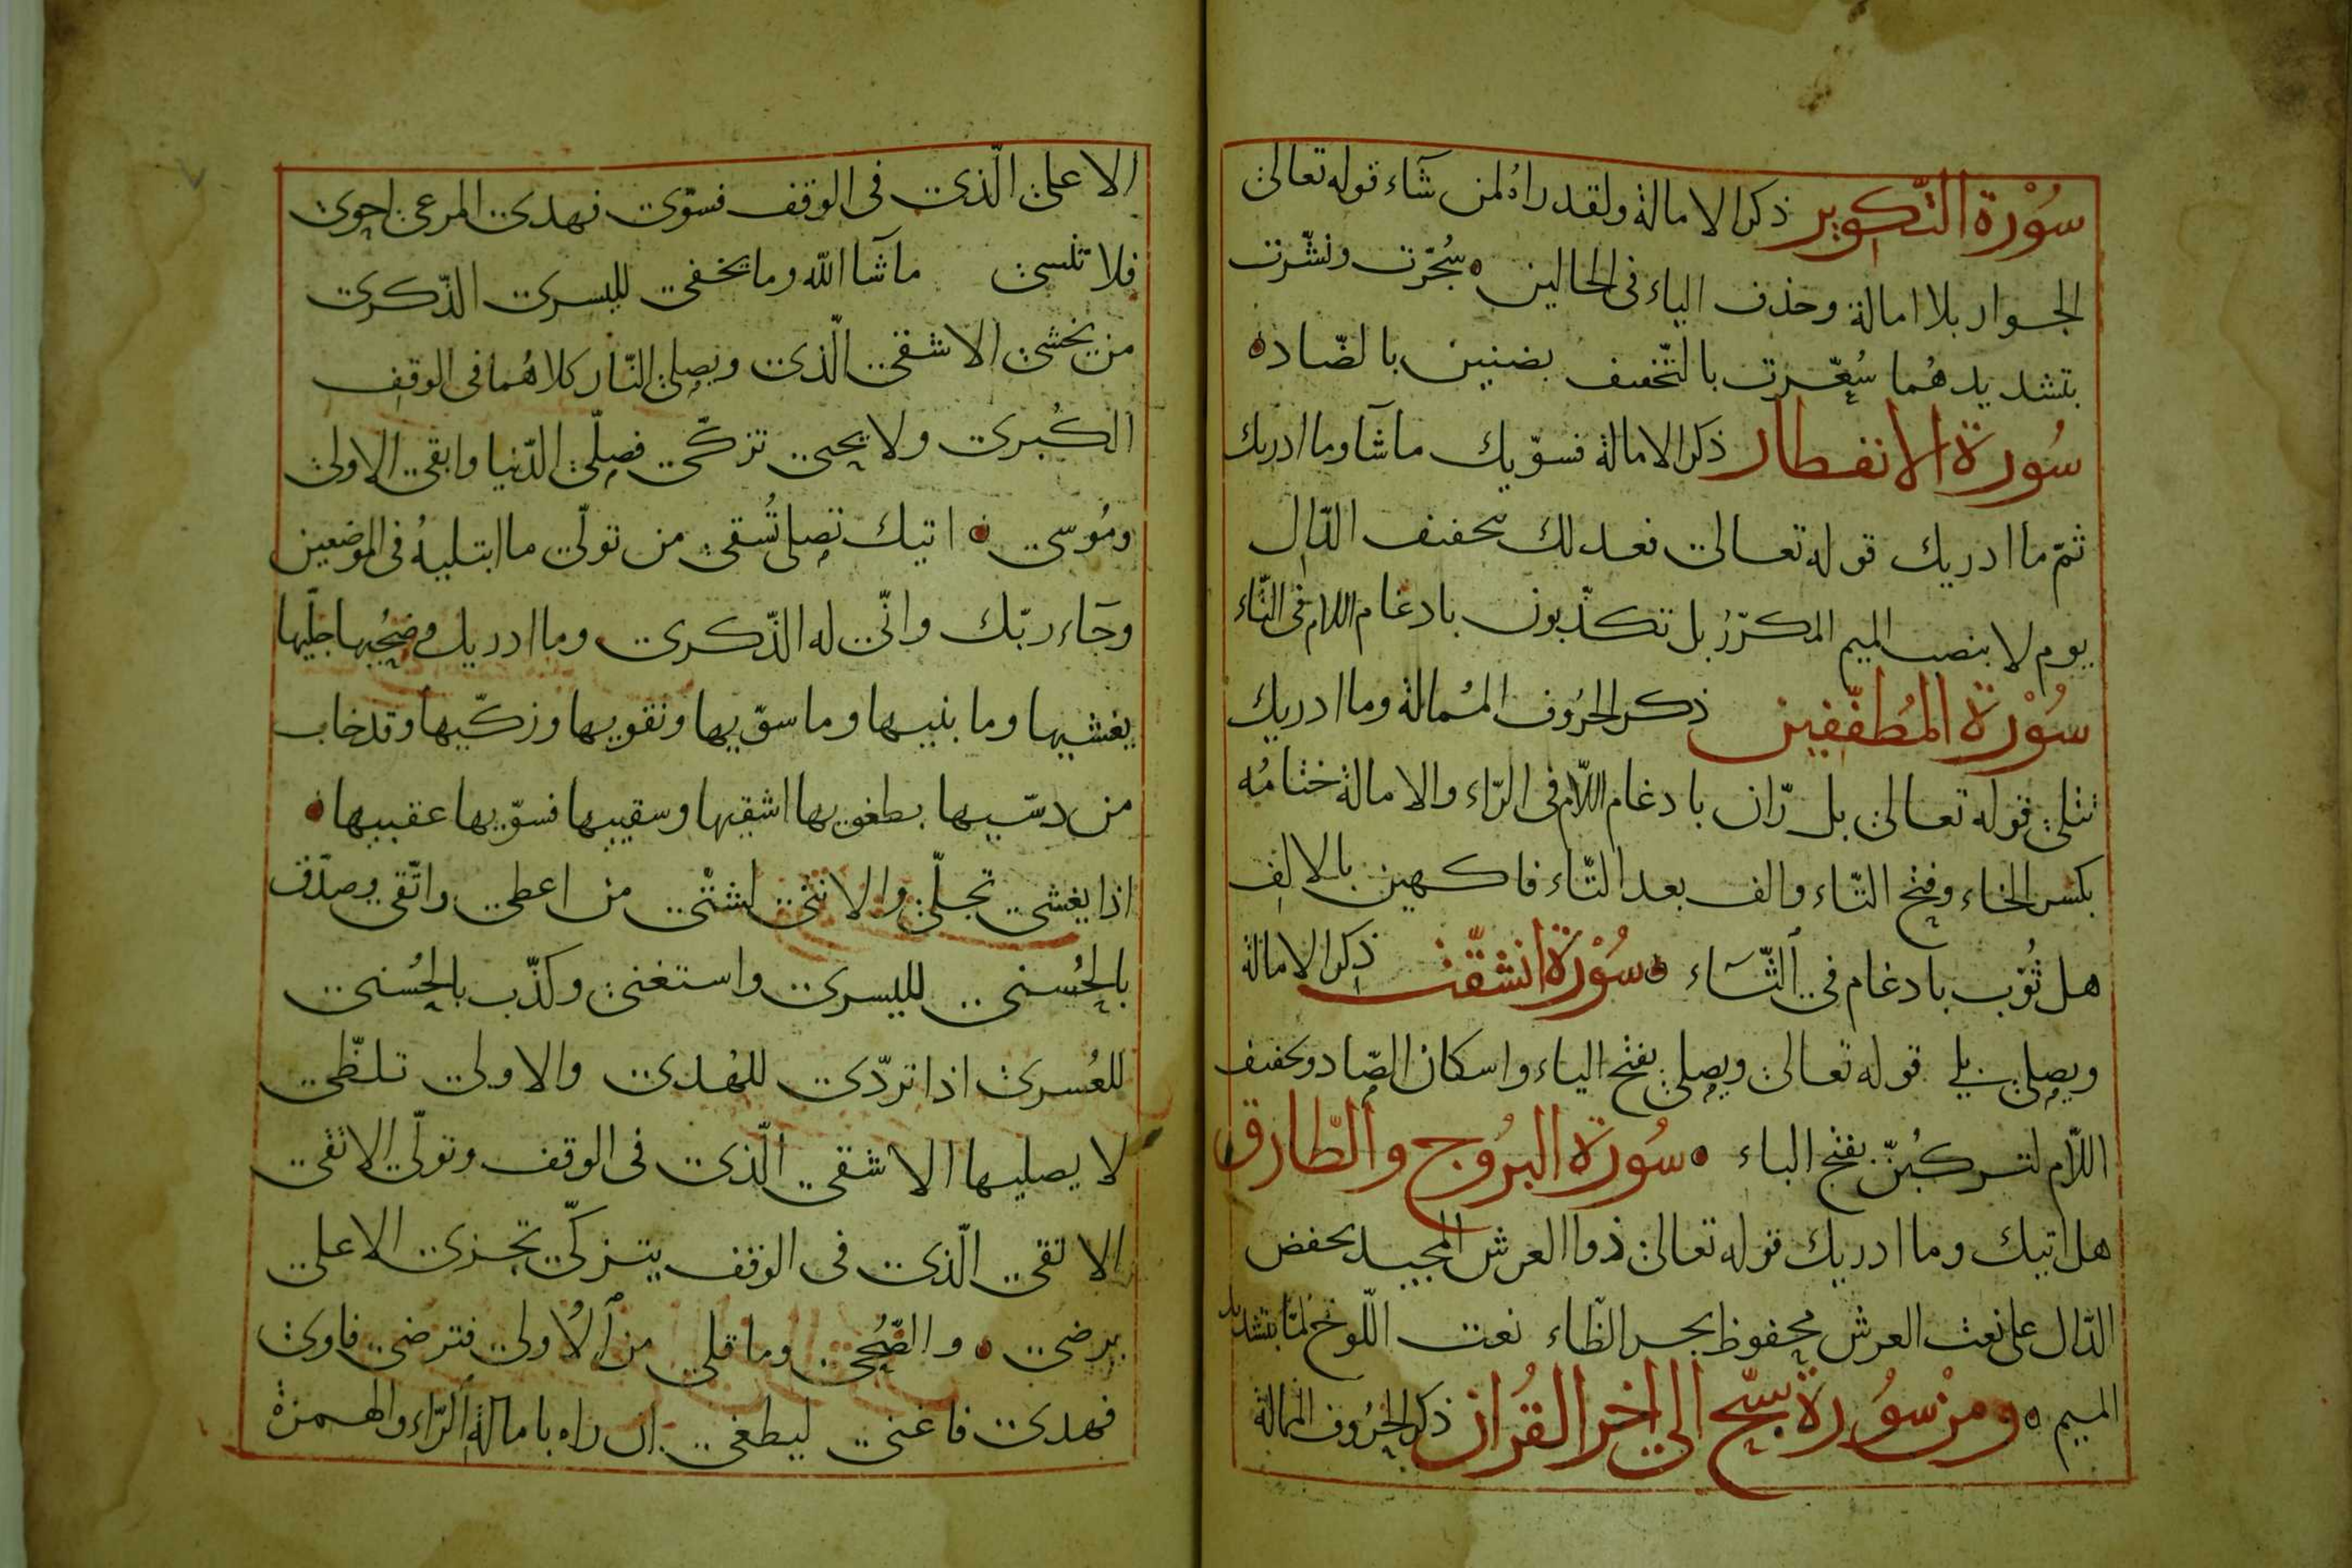 سُوْرة التّكوير ذكر الامالة ولقد راهُ لمن شآء قوله تعالى
الجوار بلا امالة وحذف الياء فى الحالين سُجّرت ونشّرت
بتشديدهُما سُعّرت بالتّخفيف بضنين بالضّاد
سُورة الانفطار ذكر الامالة فسوّيك ماشآ وما ادريك
ثمّ ما ادريك قوله تعالى فعدلك بتخفيف الدّال
يوم لا بنصب الميم المكرّرُ بل تكذّبون بادغام اللام فى التّاء
سُوْرة المُطفّفين ذكر الحرُوف المُمالة وما ادريك
تتلى قوله تعالى بل رّان بادغام اللّام فى الرّاء والامالة ختامُه
بكسر الخاء وفتح التّاء والف بعد التّاء فاكهين بالالف
هل ثُوّب بادغام فى الثّآء سُوْرة انشقّت ذكر الامالة
ويصلى بلى قوله تعالى ويصلى بفتح الياء واسكان الصّاد وتخفيف
اللّام لتركبُنّ بفتح الباء سُورة البرُوج والطّارق
هل اتيك وما ادريك قوله تعالى ذوا العرش المجيد بخفض
الدّال على نعت العرش محفوظ بجر الظّاء نعت اللّوح لمّا بتشديد
الميم ومن سُورة سبّح الى اخر القُران ذكر الحرُوف الممالة
الاعلى الّذى فى الوقف فسوّى فهدى المرعى احوى
فلا تنسى ماشآ اللّه وما يخفى لليسرى الذّكرى
من يخشى الاشقى الّذى ويصلى النّار كلاهُما فى الوقف
الكُبرى ولا يحيى تزكّى فصلّى الدّنيا وابقى الاولى
ومُوسى اتيك تصلى تُسقى من تولّى ما ابتليهُ فى الموضعين
وجآء ربّك وانّى له الذّكرى وما ادريك وضحُيها جلّيها
يغشيها وما بنيها وما سوّيها وتقويها وزكّيها وقد خاب
من دسّيها بطغويها اشقيها وسقيها فسوّيها عقبيها
اذا يغشى تجلّى والانثى لشتّى من اعطى واتّقى وصدّق
بالحُسنى لليسرى واستغنى وكذّب بالحُسنى
للعُسرى اذا تردّى للهُدى والاولى تلظّى
لا يصليها الا الاشقى الّذى فى الوقف وتولّى الاتقى
الاتقى الّذى فى الوقف يتزكّى تجزى الاعلى
يرضى والضّحُى وما قلى من الاُولى فترضى فاوى
فهدى فاغنى ليطغى ان راه بامالة الرّاء والهمزة